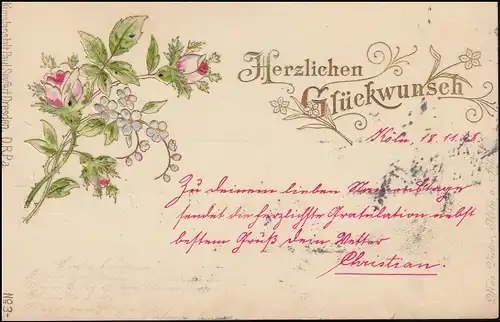 Herzlichen
Glückwunsch
Köln, 18.11.98.
Zu deinem lieben Namenstage
sendet die herzlichste Gratulation nebst
bestem Gruß dein Vetter
Christian.
Kunstanstalt Paul Dresden. D.R.P.a.
No 3-